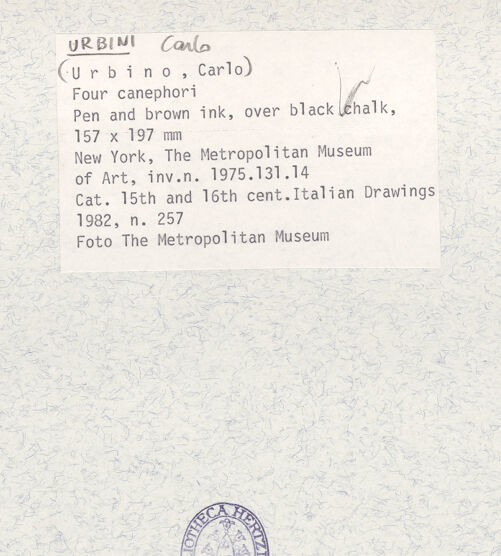 URBINI Carlo
(Urbino, Carlo)
Four canephori
Pen and brown ink, over black chalk,
157 x 197 mm
New York, The Metropolitan Museum
of Art, inv.n. 1975.131.14
Cat. 15th and 16th cent.Italian Drawings
1982, n. 257
Foto The Metropolitan Museum
IOTHECA HERTZI